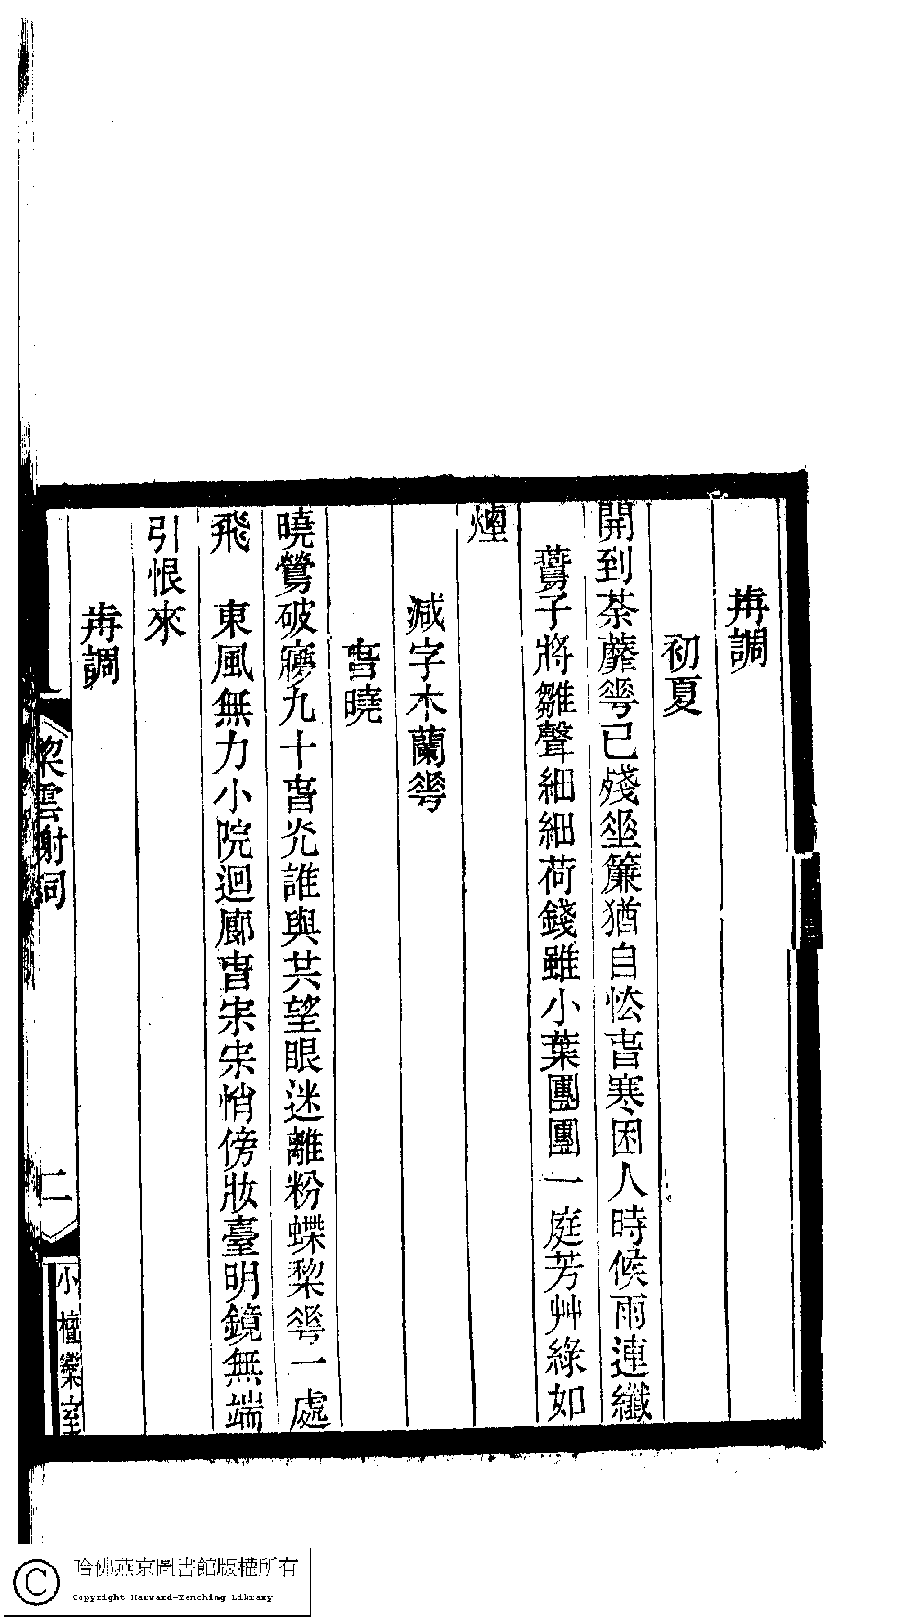 再調
初夏
開到荼蘼蕚已殘𡋲簾猶自怯旾寒困人時候雨連纖
鷰子將雛聲細細荷錢雖小葉團團一庭芳艸綠如
煙
減字木蘭蕚
旾曉
曉鶯破㝱九十旾光誰與共望眼迷離粉蝶棃蕚一處
飛　東風無力小院迴廊旾宋宋悄傍妝臺明鏡無端
引恨來
再調
棃雲榭詞
二
小檀欒室
哈佛燕京圖書館版權所有
Copyright Harvard-Yenching Library